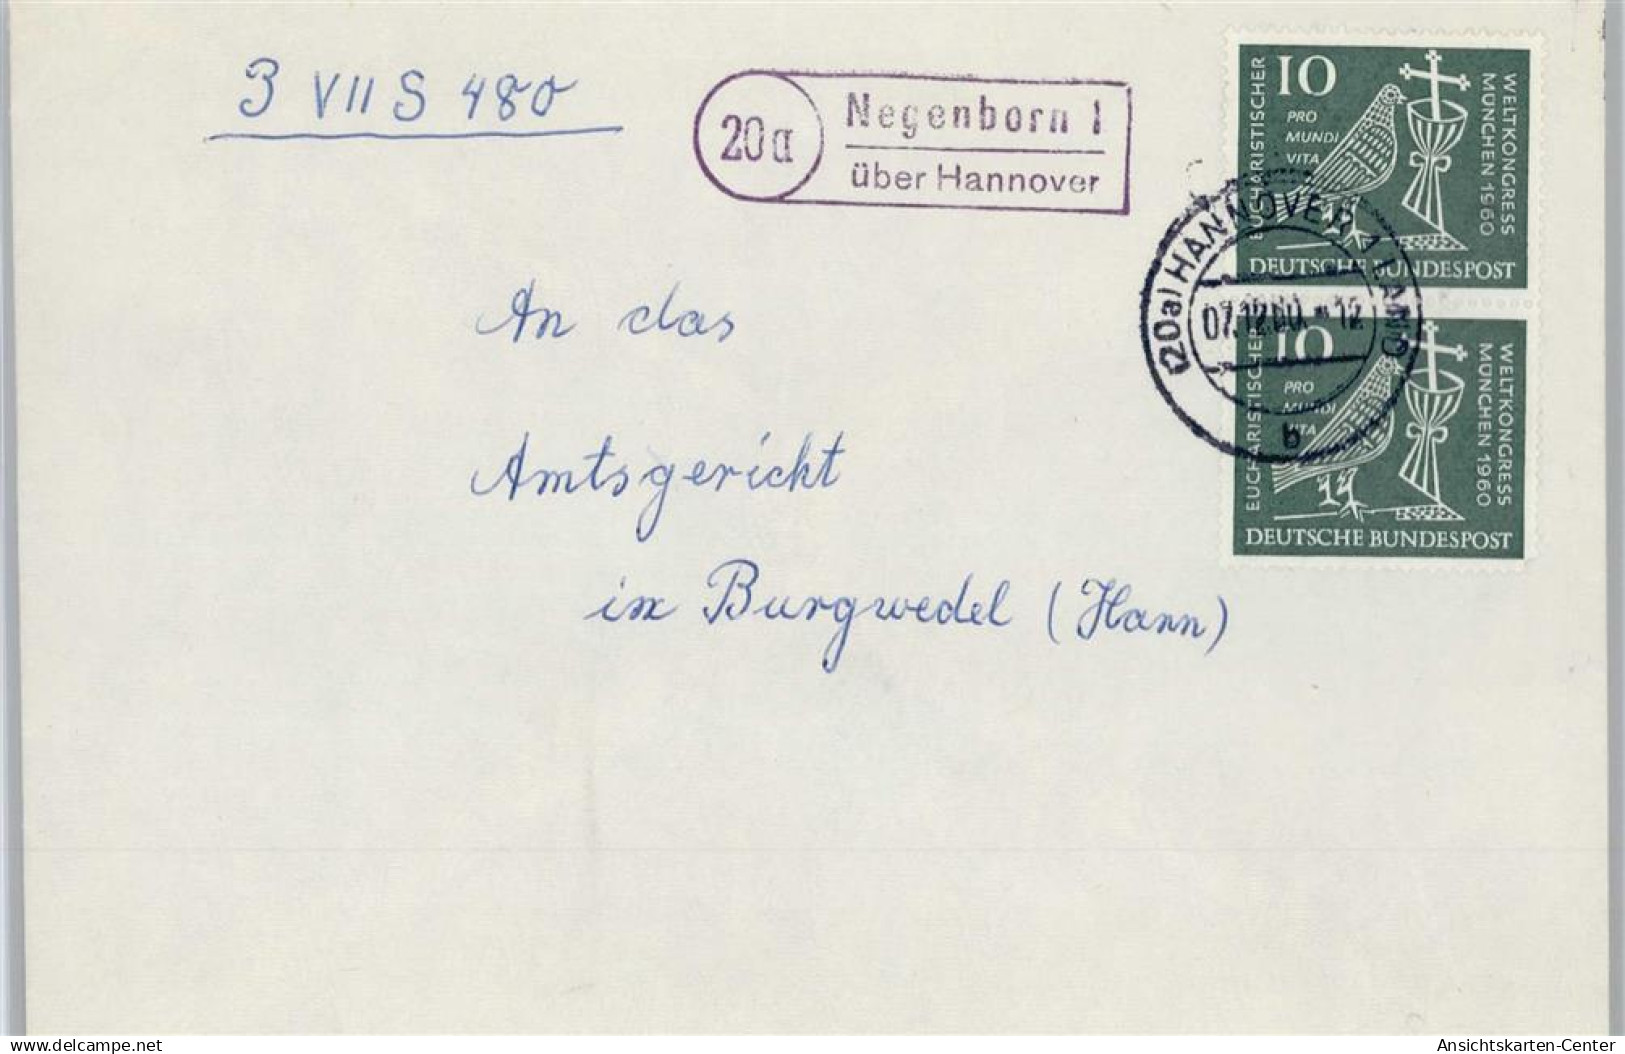 3 VII S 480
20a
Negenborn 1
über Hannover
10
PRO
MUNDI
VITA
EUCHARISTISCHER
WELTKONGRESS
MÜNCHEN 1960
DEUTSCHE BUNDESPOST
(20a) HANNOVER 1 LAND
07.12.60.-12
b
10
PRO
MUNDI
VITA
EUCHARISTISCHER
WELTKONGRESS
MÜNCHEN 1960
DEUTSCHE BUNDESPOST
An das
Amtsgericht
in Burgwedel (Hann)
www.delcampe.net
Ansichtskarten-Center